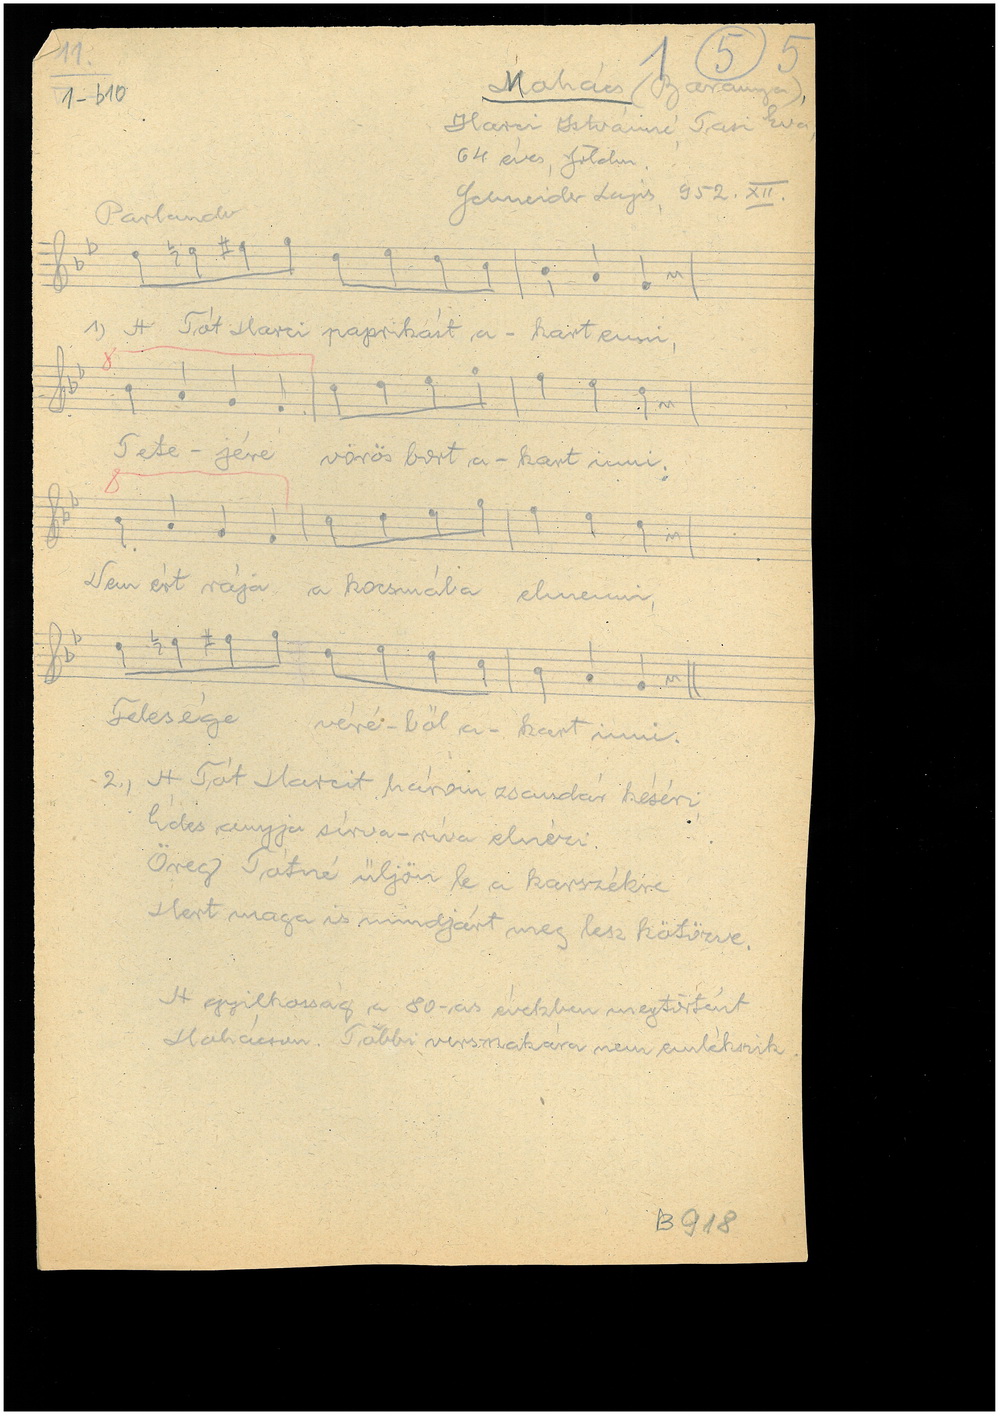 11.
1 5 5
1-b10
Mohács (Baranya),
Harci Istvánné Tasi Éva,
64 éves, földm.
Schneider Lajos, 952. XII.
Parlando
1) A Tót Marci paprikást a-kart enni,
8
Tete-jéré vörös bort a-kart inni.
8
Nem ért rája a kocsmába elmenni,
Felesége véré-ből a-kart inni.
2., A Tót Marcit három zsandár késéri
Édes anyja sírva-ríva elnézi.
Öreg Tótné üljön le a karszékre
Mert maga is mindjárt meg lesz kötözve.
A gyilkosság a 80-as években megtörtént
Mohácson. Többi versszakára nem emlékszik.
B 918